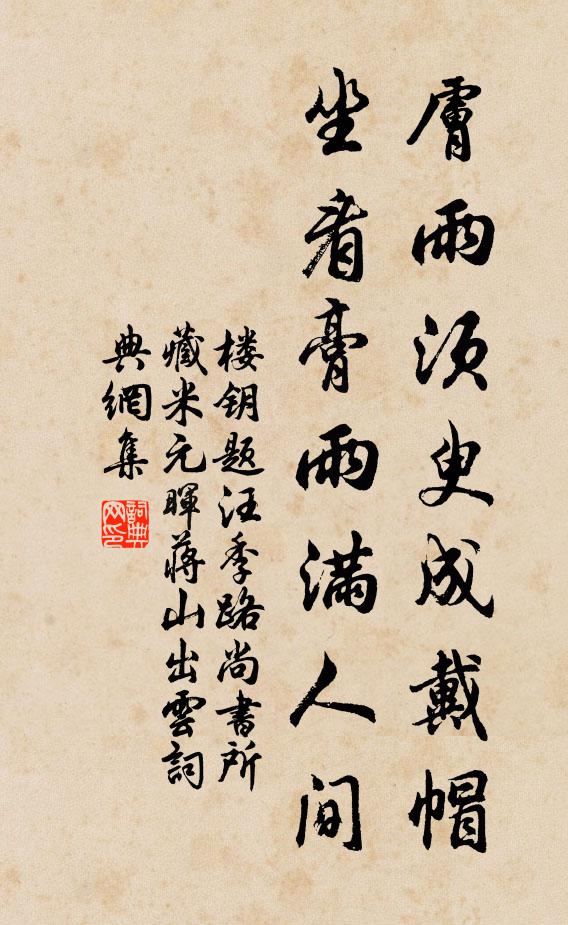 膚雨須臾成戴帽
坐看膏雨满人间
楼钥题汪季路尚書所
藏米元暉蒋山出雲詞
典網集
詞典网印